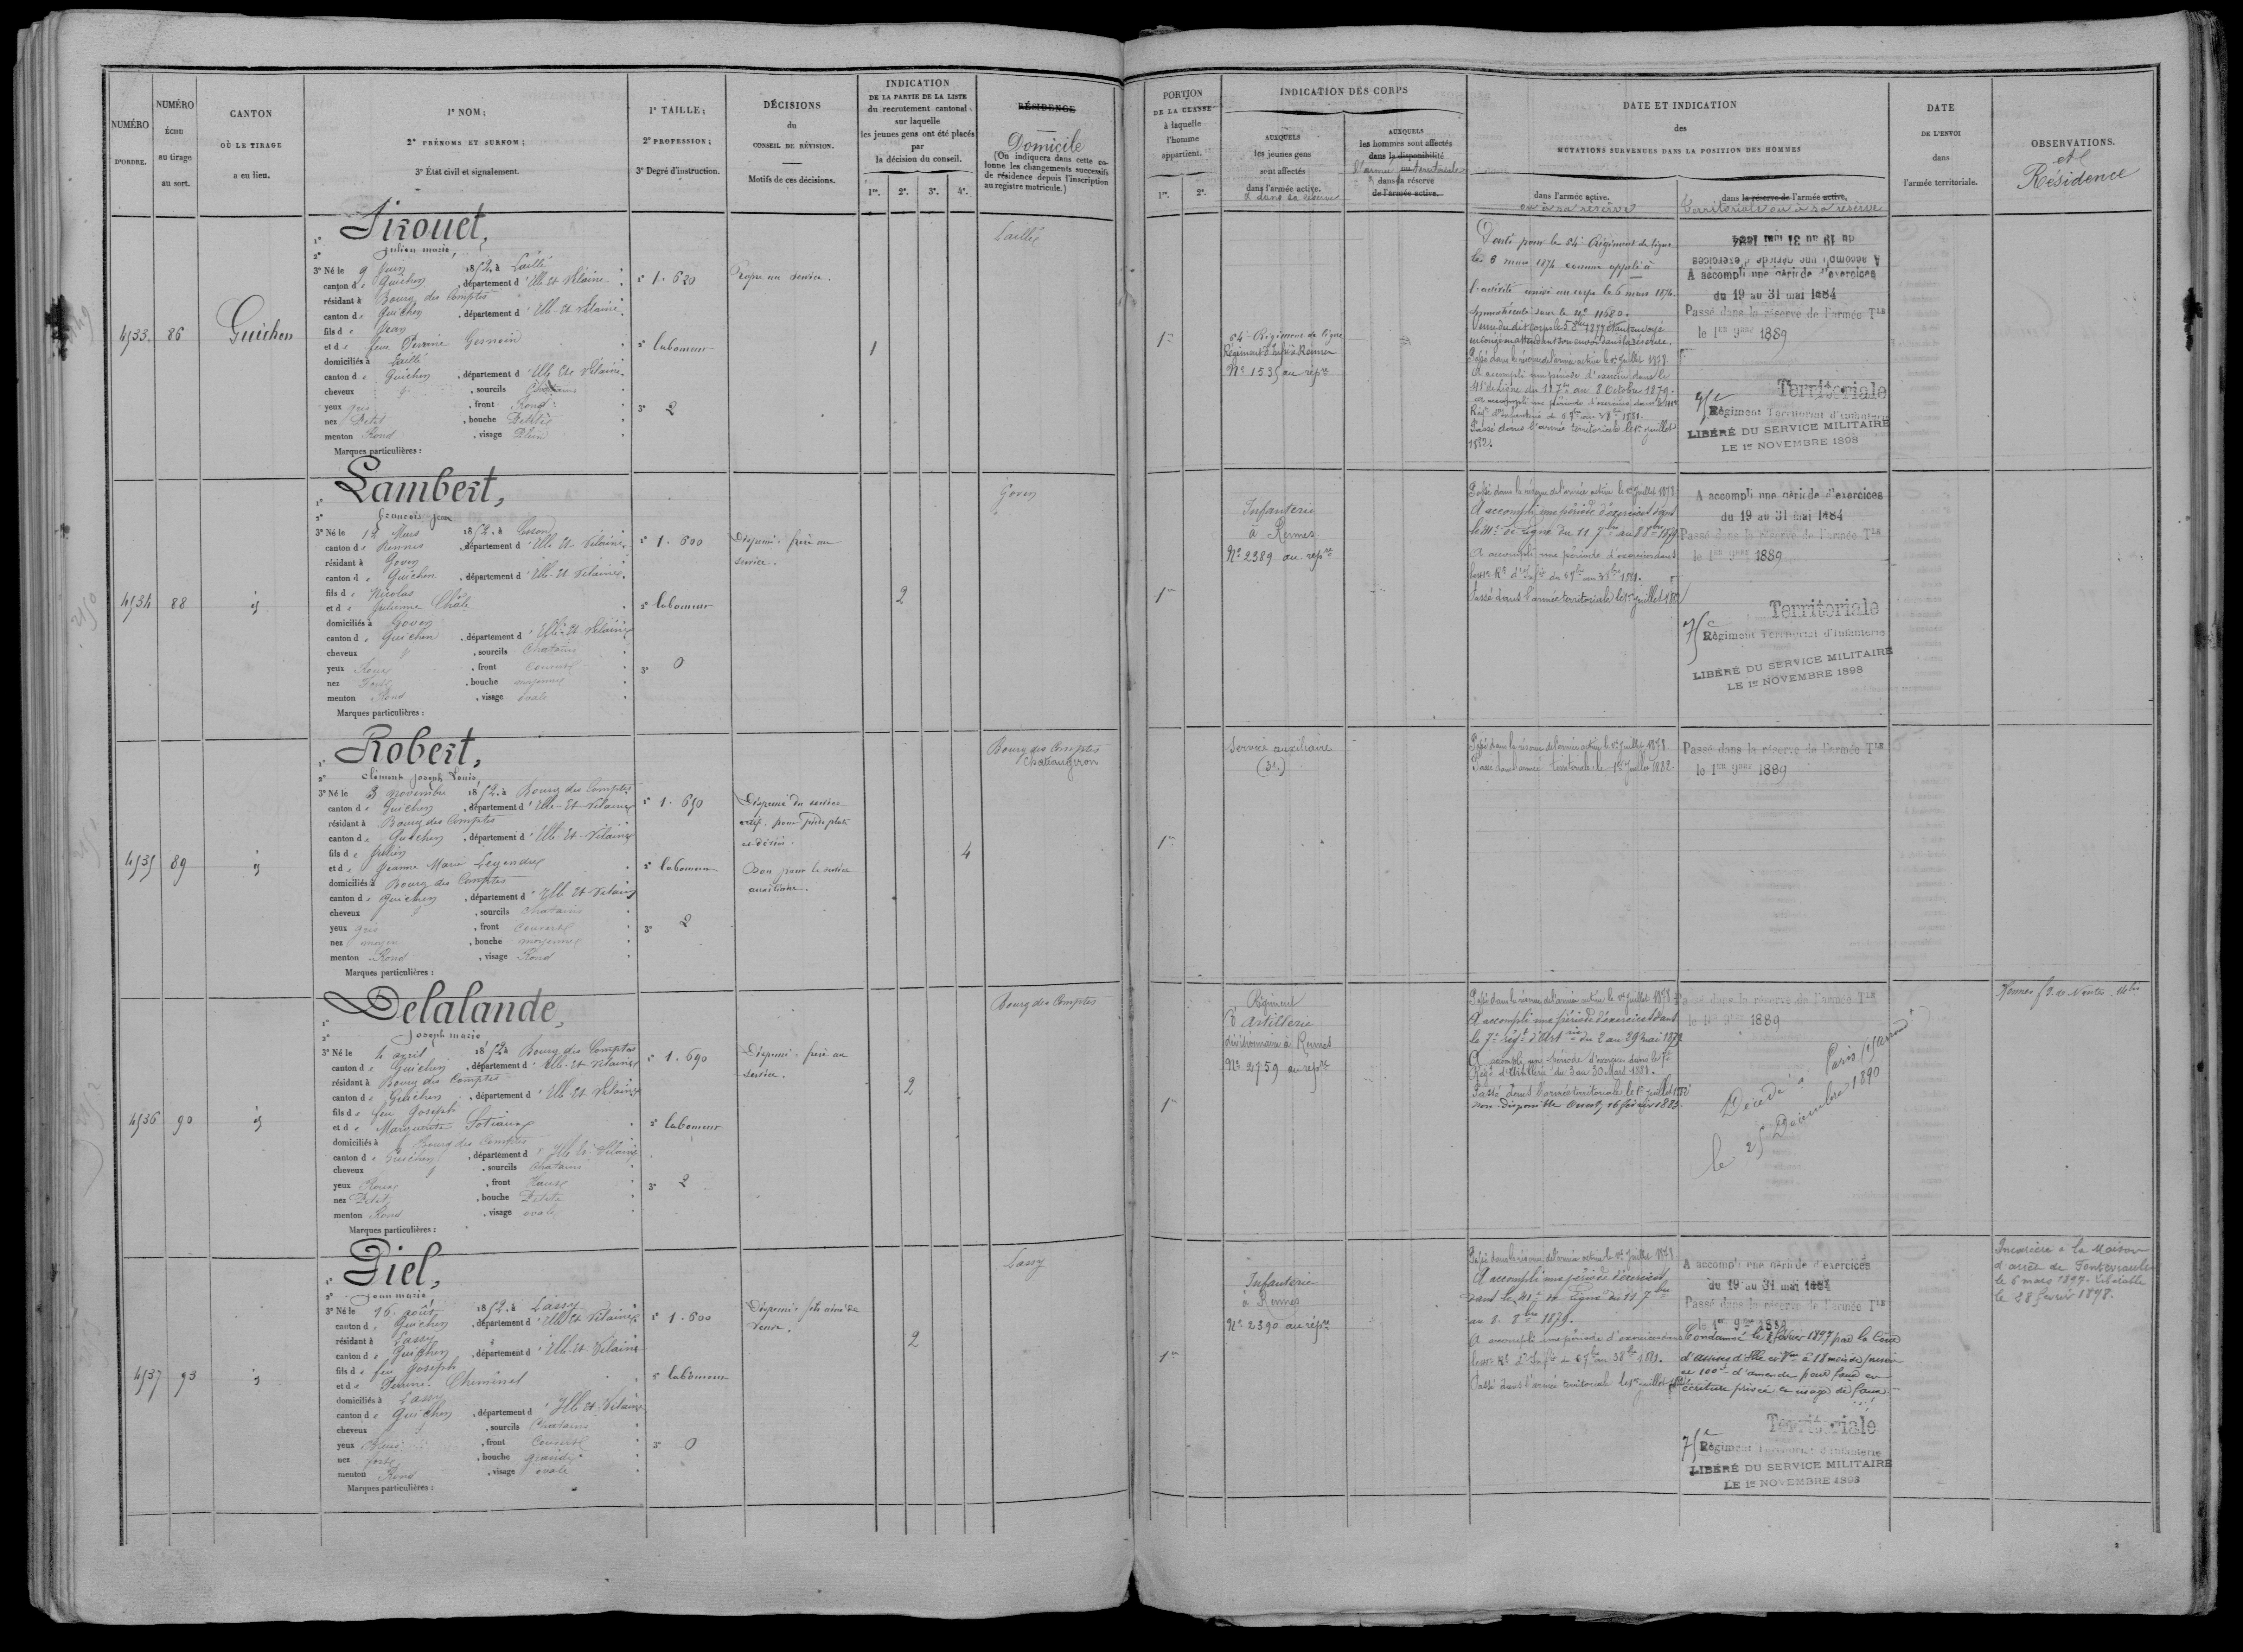 NUMÉRO
D'ORDRE.
NUMÉRO
ÉCHU
au tirage
au sort.
CANTON
OÙ LE TIRAGE
a eu lieu.
1° NOM;
2° PRÉNOMS ET SURNOM;
3° État civil et signalement.
1° TAILLE;
2° PROFESSION;
3° Degré d'instruction.
DÉCISIONS
du
CONSEIL DE RÉVISION.
Motifs de ces décisions.
INDICATION
DE LA PARTIE DE LA LISTE
du recrutement cantonal
sur laquelle
les jeunes gens ont été placés
par
la décision du conseil.
1re. 2e. 3e. 4e.
RÉSIDENCE
Domicile
(On indiquera dans cette co-
lonne les changements successifs
de résidence depuis l'inscription
au registre matricule.)
PORTION
DE LA CLASSE
à laquelle
l'homme
appartient.
1re. 2e.
INDICATION DES CORPS
AUXQUELS
les jeunes gens
sont affectés
dans l'armée active.
et dans sa réserve
AUXQUELS
les hommes sont affectés
dans la disponibilité
l'armée territoriale
dans sa réserve
de l'armée active.
DATE ET INDICATION
des
MUTATIONS SURVENUES DANS LA POSITION DES HOMMES
dans l'armée active.
ou à sa réserve
dans la réserve de l'armée active,
territoriale ou à sa réserve
DATE
DE L'ENVOI
dans
l'armée territoriale.
OBSERVATIONS.
et
Résidence
4533. 86 Guichen
1° Tirouet,
2° Julien marie,
3° Né le 9 Juin 1852, à Laillé
canton de Guichen, département d'Ille-Et-Vilaine
résidant à Bourg des Comptes
canton de Guichen, département d'Ille-Et-Vilaine
fils de Jean
et de feue Perrine Gesnoin
domiciliés à Laillé
canton de Guichen, département d'Ille-Et-Vilaine
cheveux , sourcils Chatains
yeux gris , front Rond
nez Petit , bouche Petite
menton Rond , visage Plein
Marques particulières :
1° 1.620
2° laboureur
3° 2
Propre au service.
1
Laillé
1re
64e Régiment de ligne
Régiment d'Infie à Rennes
No 1535 au répre
Passé dans la réserve de l'armée active le 1er Juillet 1878.
A accompli une période d'exercice dans le
41e de ligne du 11 7bre au 8 Octobre 1879.
Passé dans l'armée territoriale le 1er juillet
1882.
du 19 au 31 mai 1884
A accompli une période d'exercices
A accompli une période d'exercices
du 19 au 31 mai 1884
Passé dans la réserve de l'armée Tle
le 1er 9bre 1889
Territoriale
75e
Régiment Territorial d'Infanterie
LIBÉRÉ DU SERVICE MILITAIRE
LE 1er NOVEMBRE 1898
4534 88 id
1° Lambert,
2° François Jean
3° Né le 12 Mars 1852, à Cesson
canton de Rennes, département d'Ille-Et-Vilaine
résidant à Goven
canton de Guichen, département d'Ille-Et-Vilaine
fils de Nicolas
et de Julienne Châle
domiciliés à Goven
canton de Guichen, département d'Ille-Et-Vilaine
cheveux , sourcils Chatains
yeux Roux , front Couvert
nez Fort , bouche moyenne
menton Rond , visage ovale
Marques particulières :
1° 1.600
2° laboureur
3° 0
Dispensé. frère au
service.
2
Goven
1re
Infanterie
à Rennes
No 2389 au répre
Passé dans la réserve de l'armée active le 1er Juillet 1878
A accompli une période d'exercices dans
le 41e de Ligne du 11 7bre au 8 8bre 1879
A accompli une période d'exercices dans
Passé dans l'armée territoriale le 1er juillet 1882
A accompli une période d'exercices
du 19 au 31 mai 1884
Passé dans la réserve de l'armée Tle
le 1er 9bre 1889
Territoriale
75e
Régiment Territorial d'Infanterie
LIBÉRÉ DU SERVICE MILITAIRE
LE 1er NOVEMBRE 1898
4535 89 id
1° Robert,
2° Clément Joseph Louis,
3° Né le 3 novembre 1852, à Bourg des Comptes
canton de Guichen, département d'Ille-Et-Vilaine
résidant à Bourg des Comptes
canton de Guichen, département d'Ille-Et-Vilaine
fils de Julien
et de Jeanne Marie Legendre
domiciliés à Bourg des Comptes
canton de Guichen, département d'Ille-Et-Vilaine
cheveux , sourcils Chatains
yeux gris , front Couvert
nez moyen , bouche moyenne
menton Rond , visage Rond
Marques particulières :
1° 1.650
2° laboureur
3° 2
Dispensé du service
actif. pour pieds plats
Bon pour le service
auxiliaire.
4
Bourg des Comptes
Chateaugiron
1re
Service auxiliaire
Passé dans la réserve de l'armée active le 1er Juillet 1878
Passé dans l'armée territoriale le 1er Juillet 1882.
Passé dans la réserve de l'armée Tle
le 1er 9bre 1889
4536 90 id
1° Delalande,
2° Joseph marie
3° Né le 4 avril 1852 à Bourg des Comptes
canton de Guichen, département d'Ille-Et-Vilaine
résidant à Bourg des Comptes
canton de Guichen, département d'Ille-Et-Vilaine
fils de feu Joseph
et de Marguerite
domiciliés à Bourg des Comptes
canton de Guichen, département d'Ille-Et-Vilaine
cheveux , sourcils Chatains
yeux Roux , front Haut
nez Petit , bouche Petite
menton Rond , visage ovale
Marques particulières :
1° 1.690
2° laboureur
3° 2
Dispensé. frère au
service.
2
Bourg des Comptes
1re
Régiment
d'Artillerie
divisionnaire à Rennes
No 2759 au répre
Passé dans la réserve de l'armée active le 1er Juillet 1878
A accompli une période d'exercices dans
le 7e régt d'Artrie du 2 au 29 mai 1879
A accompli une période d'exercices dans le 7e
Régt d'Artillerie du 3 au 30 Mars 1881.
Passé dans l'armée territoriale le 1er juillet 1882
non-disponible Ouest, 16 février 1883.
Passé dans la réserve de l'armée Tle
le 1er 9bre 1889
Décédé à Paris
le 25 Décembre 1890
Rennes
4537 93 id
1° Piel,
2° Jean marie,
3° Né le 16 août 1852, à Lassy
canton de Guichen, département d'Ille-Et-Vilaine
résidant à Lassy
canton de Guichen, département d'Ille-Et-Vilaine
fils de feu Joseph
et de Perrine Cheminel
domiciliés à Lassy
canton de Guichen, département d'Ille-Et-Vilaine
cheveux , sourcils Chatains
yeux Bleus , front Couvert
nez fort , bouche grande
menton Rond , visage ovale
Marques particulières :
1° 1.600
2° laboureur
3° 0
Dispensé. fils aîné de
veuve.
2
Lassy
1re
Infanterie
à Rennes
No 2390 au répre
Passé dans la réserve de l'armée active le 1er Juillet 1878
A accompli une période d'exercices
dans le 41e de Ligne du 11 7bre
au 8 8bre 1879.
A accompli une période d'exercices dans
Passé dans l'armée territoriale le 1er juillet
A accompli une période d'exercices
du 19 au 31 mai 1884
Passé dans la réserve de l'armée Tle
le 1er 9bre 1889
Condamné le 8 février 1897 par la Cour
d'assises d'Ille et Vne à 18 mois de prison
et 100f d'amende pour faux en
écriture privée et usage de faux.
Territoriale
75e
Régiment Territorial d'Infanterie
LIBÉRÉ DU SERVICE MILITAIRE
LE 1er NOVEMBRE 1898
Incarcéré à la Maison
d'arrêt de Fontevrault
le 6 mars 1897. Libérable
le 28 février 1898.